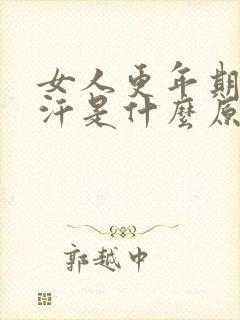 女人更年期
汗是什麼原
郭越中